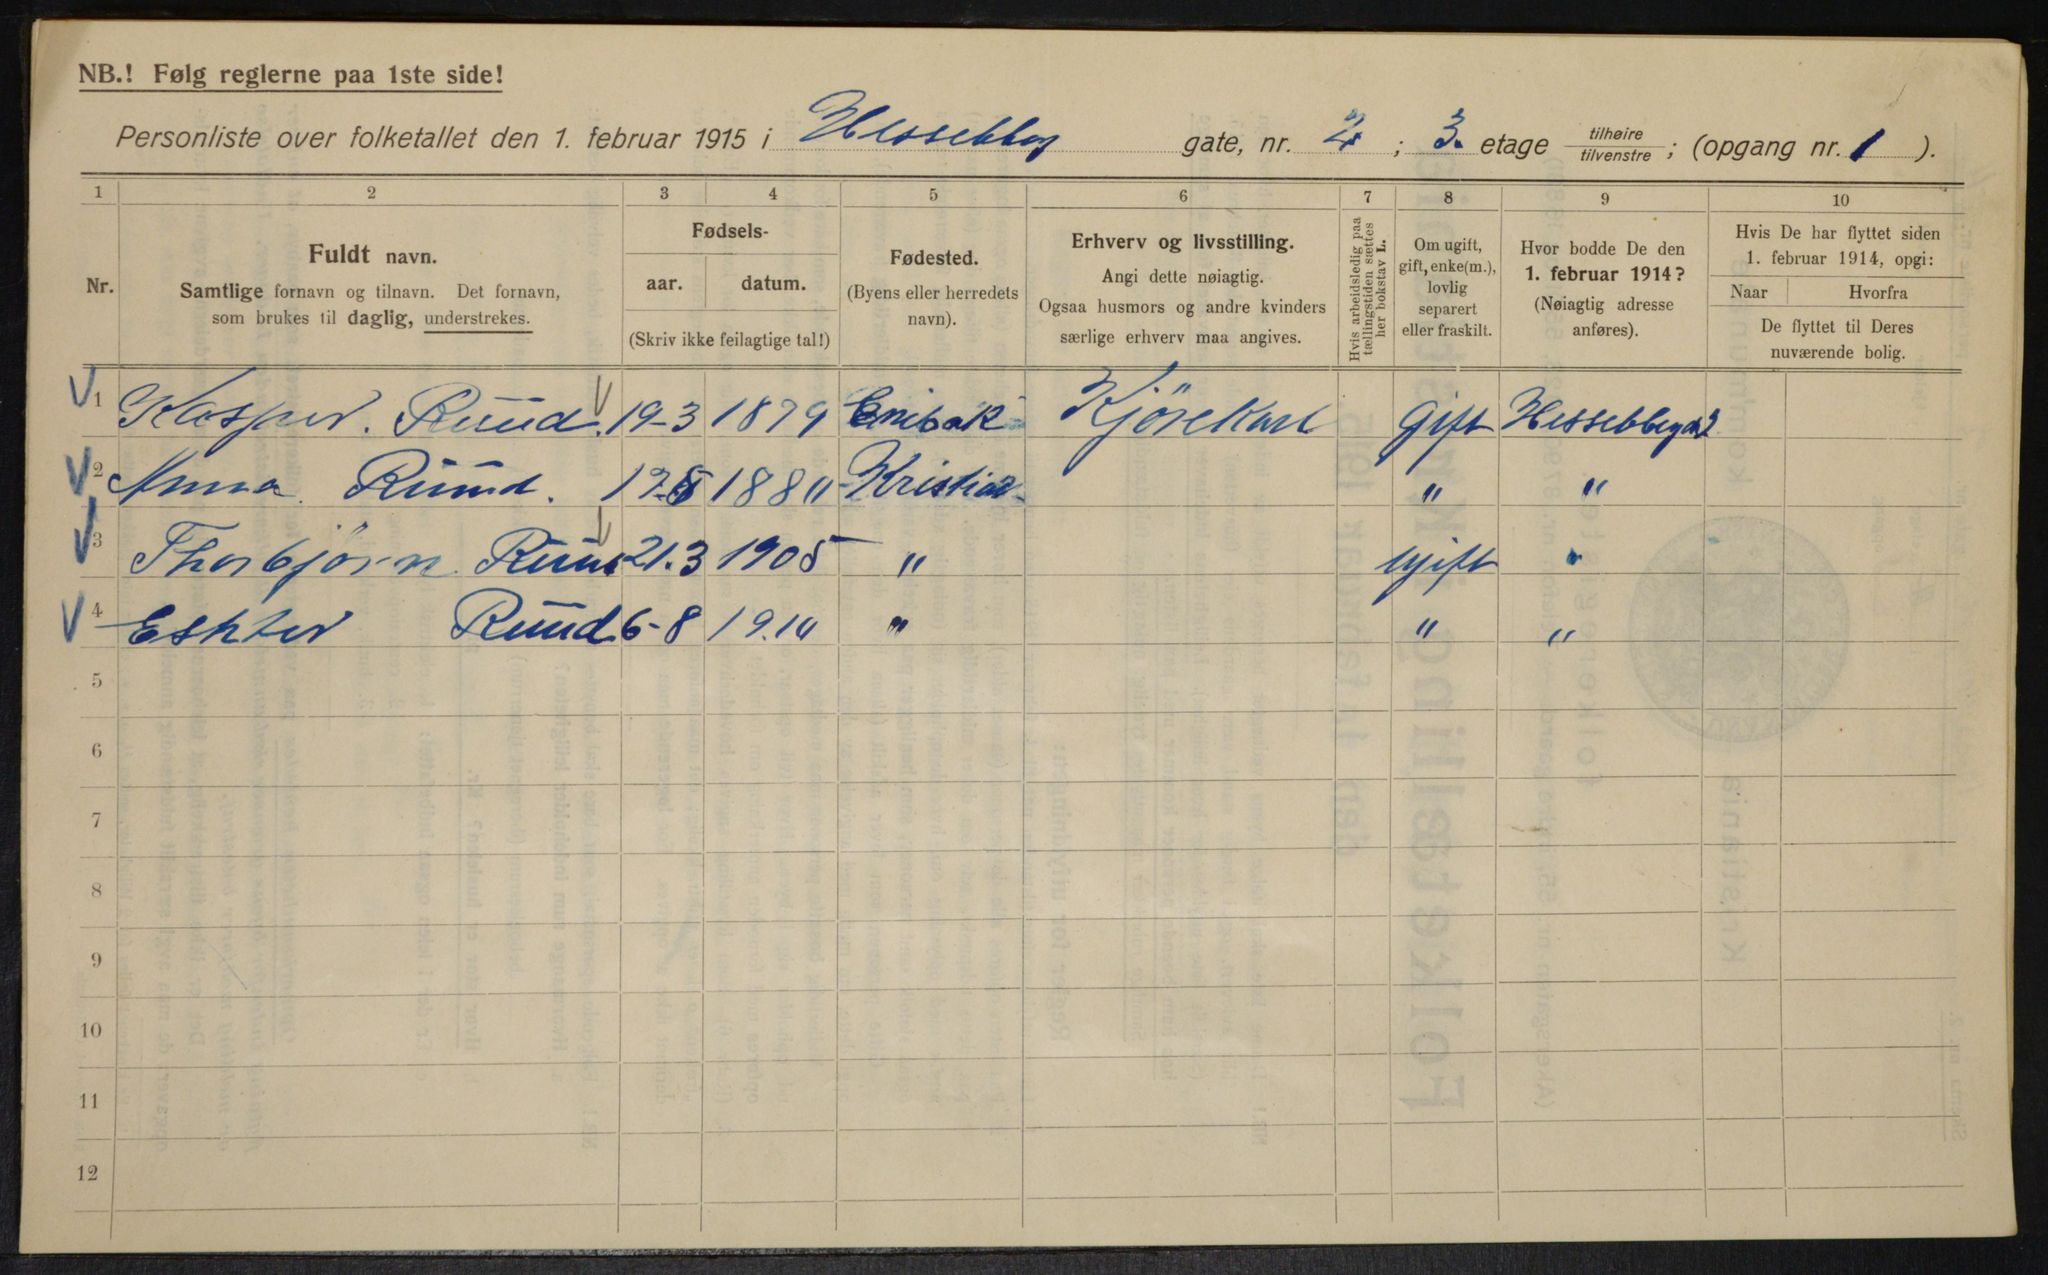 NB.! Følg reglerne paa 1ste side!
Personliste over folketallet den 1. februar 1915 i Hessebbg gate, nr. 2; 3. etage tilhøire tilvenstre; (opgang nr. 1).
1 2 3 4 5 6 7 8 9 10
Nr.
Fuldt navn.
Samtlige fornavn og tilnavn. Det fornavn,
som brukes til daglig, understrekes.
Fødsels-
aar. datum.
(Skriv ikke feilagtige tal!)
Fødested.
(Byens eller herredets
navn).
Erhverv og livsstilling.
Angi dette nøiagtig.
Ogsaa husmors og andre kvinders
særlige erhverv maa angives.
Hvis arbeidsledig paa
tællingstiden sættes
her bokstav L.
Om ugift,
gift, enke(m.),
lovlig
separert
eller fraskilt.
Hvor bodde De den
1. februar 1914?
(Nøiagtig adresse
anføres).
Hvis De har flyttet siden
1. februar 1914, opgi:
Naar Hvorfra
De flyttet til Deres
nuværende bolig.
1 Kasper. Ruud. 19-3 1879 Enibak Kjørekarl gift Hessebbergd 2
2 Anna Ruud. 1880 Kristia " "
3 Thorbjørn Ruud 21.3 1905 " Ugift "
4 Eshter Ruud 6-8 1910 " " "
5
6
7
8
9
10
11
12